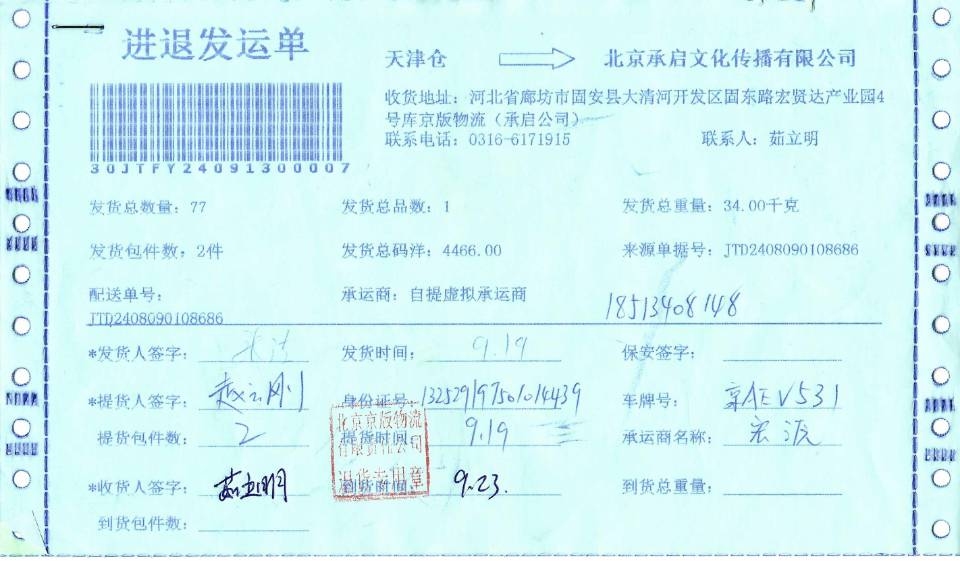 进退发运单
天津仓 北京承启文化传播有限公司
收货地址：河北省廊坊市固安县大清河开发区固东路宏贤达产业园4
号库京版物流（承启公司）
联系电话：0316-6171915 联系人：茹立明
30JTFY24091300007
发货总数量：77 发货总品数：1 发货总重量：34.00千克
发货包件数：2件 发货总码洋：4466.00 来源单据号：JTD2408090108686
配送单号： 承运商：自提虚拟承运商 18513408148
JTD2408090108686
*发货人签字： 发货时间：9.19 保安签字：
*提货人签字：赵云刚 身份证号：132529197501014439 车牌号：京AEV531
提货包件数：2 提货时间：9.19 承运商名称：宏源
*收货人签字：茹立明 到货时间：9.23. 到货总重量：
到货包件数：
北京京版物流
有限责任公司
退货专用章